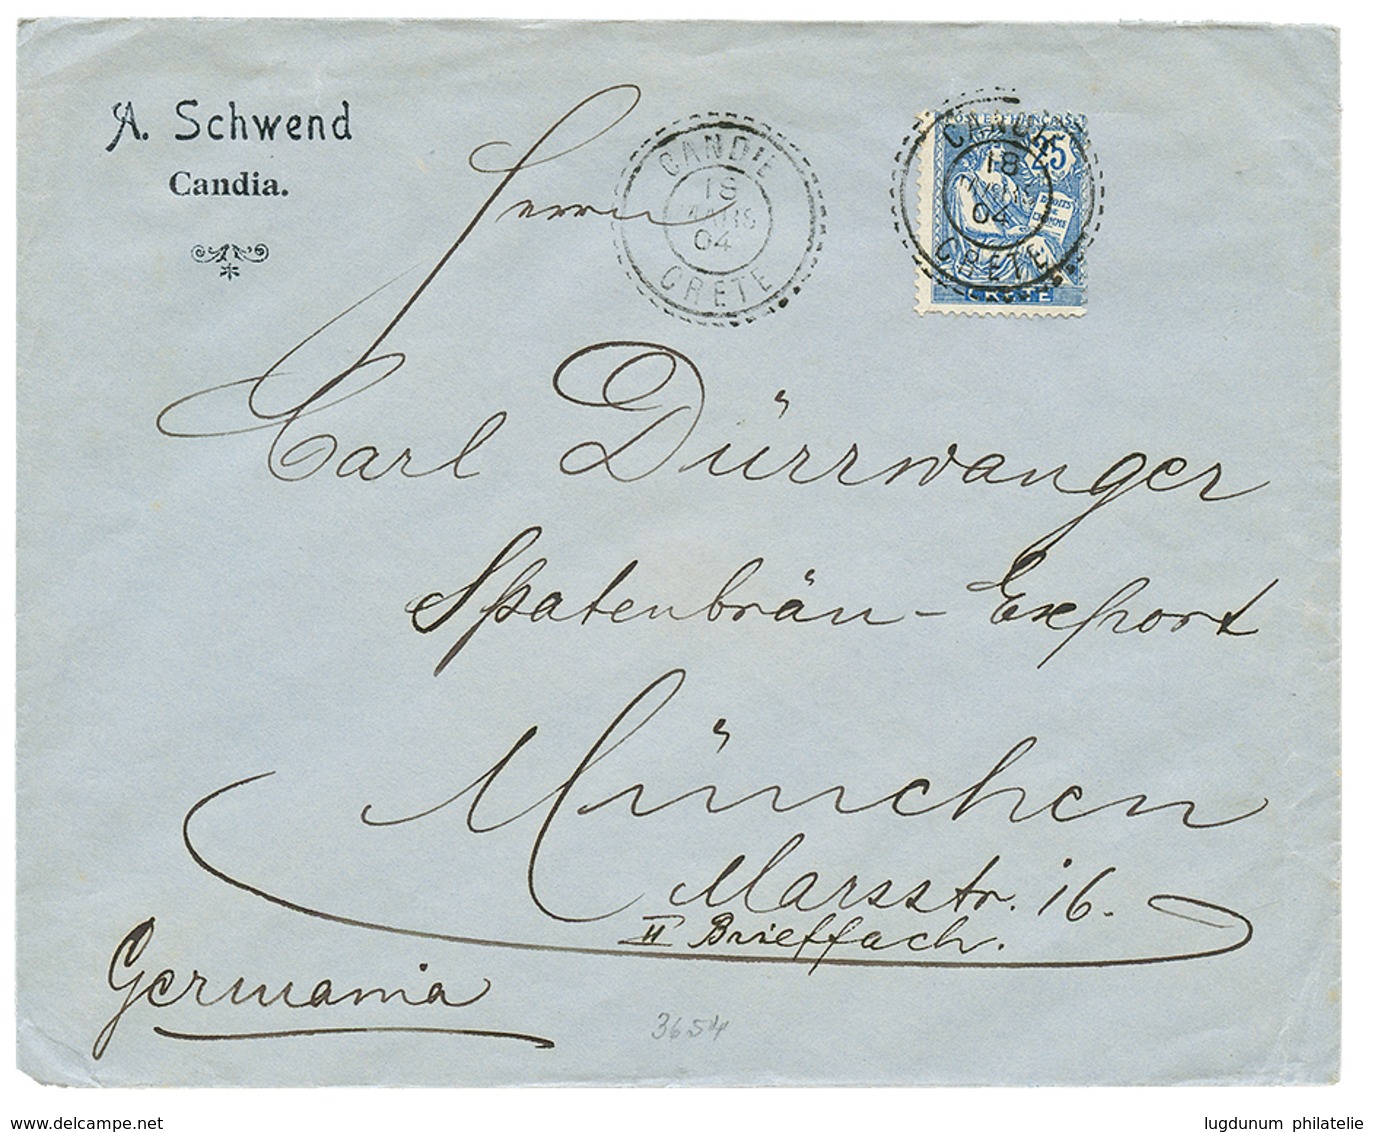 A. Schwend
Candia.
CANDIE
18
MARS
04
CRETE
POSTE FRANÇAISE
25
DROITS
DE
L'HOMME
CRÈTE
CANDIE
18
MARS
04
CRETE
Herrn
Carl Dürrwanger
Spatenbräu - Export
München
Marsstr. 16.
II Brieffach.
Germania
3654
www.delcampe.net
lugdunum philatelie